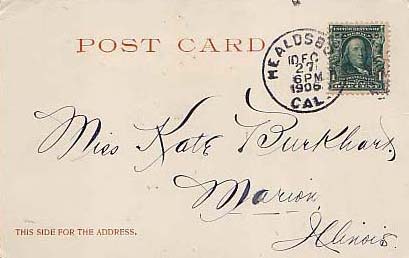 POST CARD
HEALDSB
DEC
27
6 PM
1906
CAL.
Miss Kate Burkhart
Marion,
Illinois.
THIS SIDE FOR THE ADDRESS.